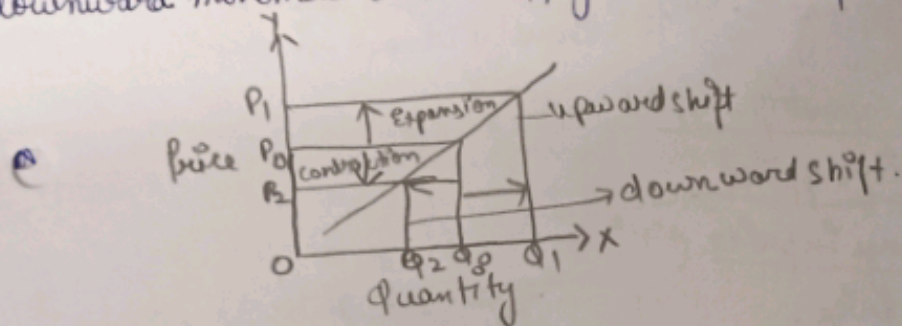 downward
Y
P1
Expansion
upward shift
e
Price
P0
contraction
P2
downward shift.
X
O
Q2
Q1
Quantity